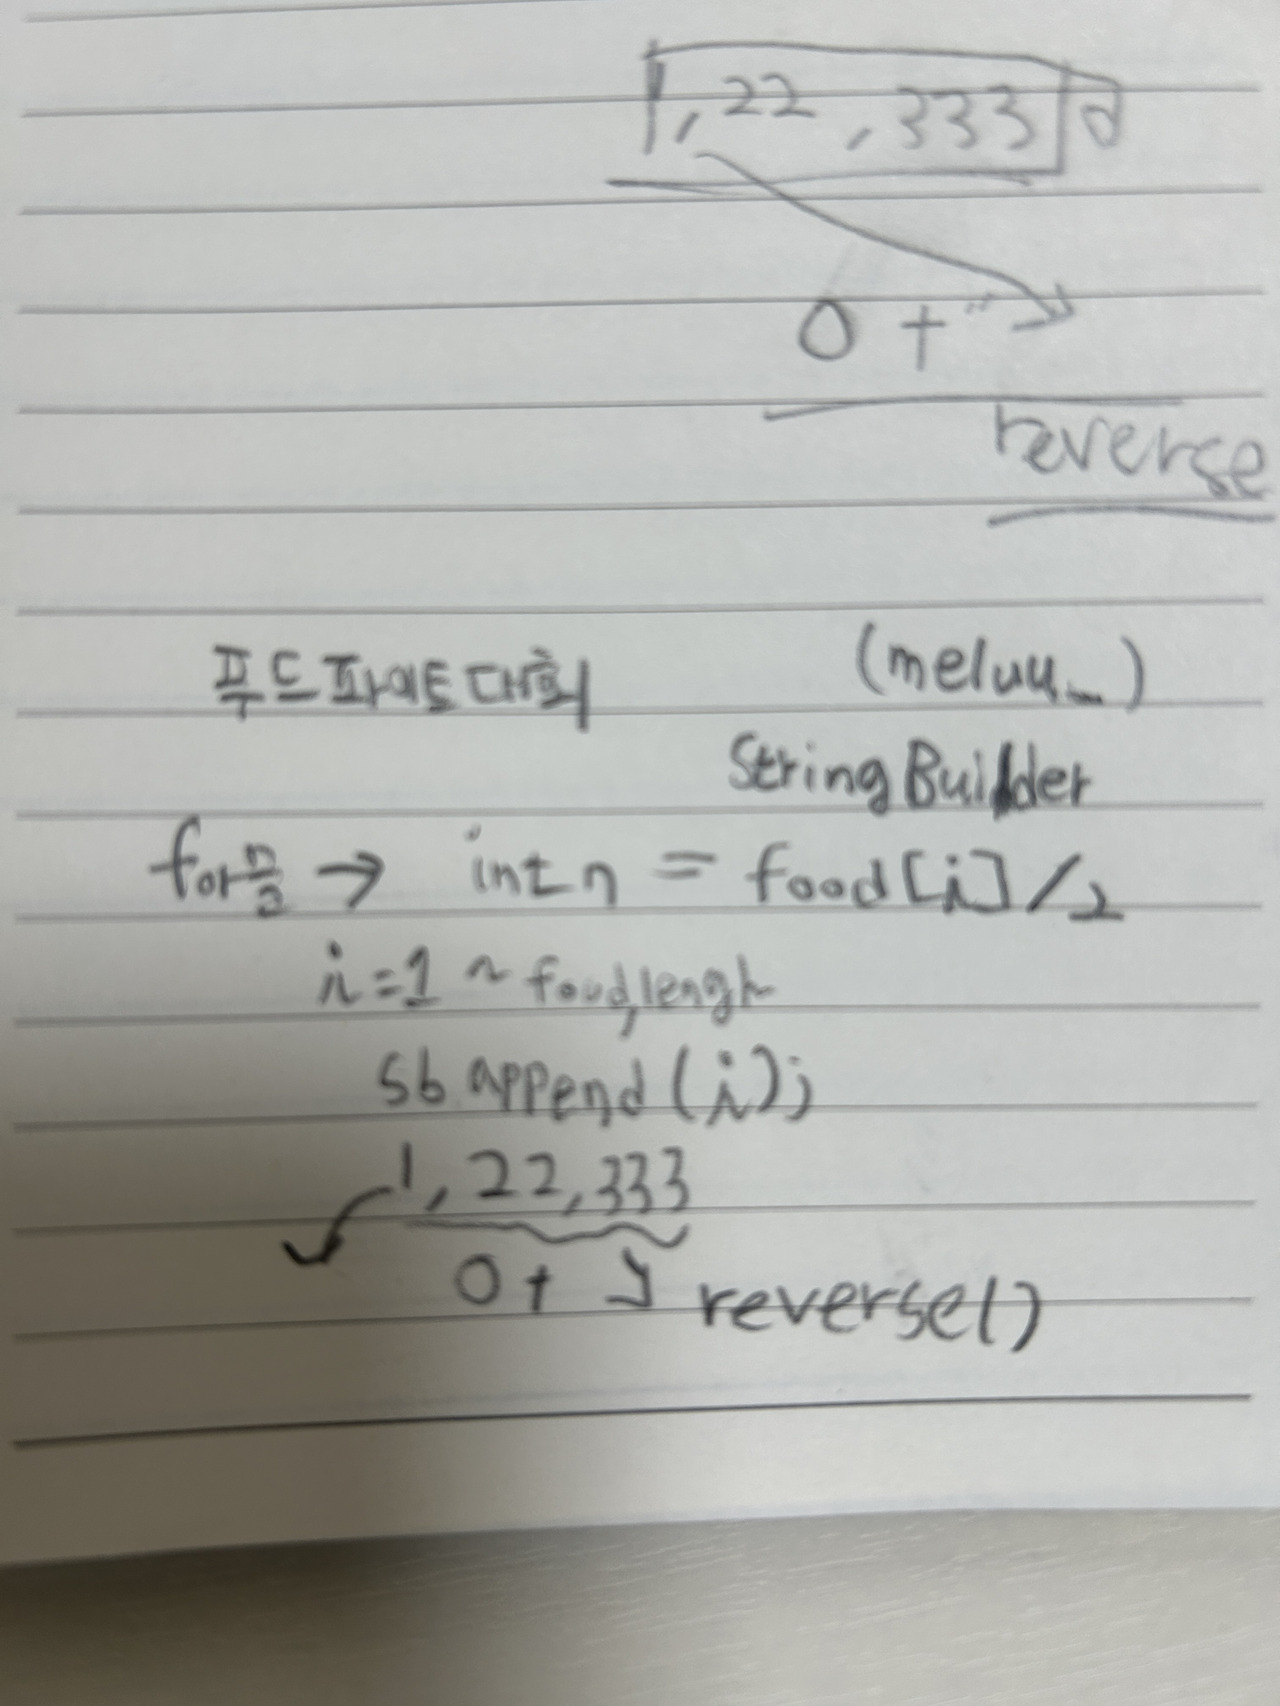 1,22,333
0 + "
reverse
푸드파이트대회 (meluu_)
StringBuilder
for → int n = food[i]/2
i=1 ~ food.lengh
sb append(i);
1,22,333
0+ reverse()